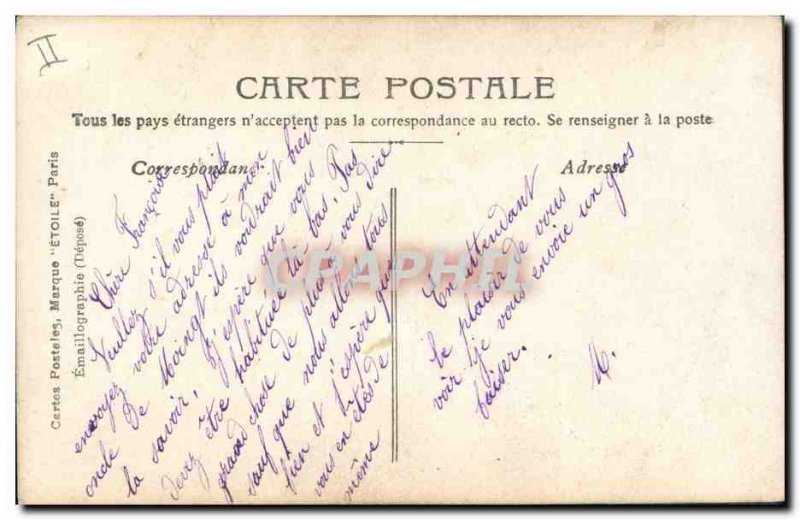 II
CARTE POSTALE
Tous les pays étrangers n'acceptent pas la correspondance au recto. Se renseigner à la poste
Correspondance
Adresse
Cartes Postales, Marque "ÉTOILE" Paris
Émaillographie (Déposé)
Chère Françoise
Veuillez s'il vous plait
envoyez votre adresse à mon
oncle de Moingt ils voudrait bien
la savoir. J'espère que vous
devez être habituée là bas. Pas
grand chose de plus à vous dire
sauf que nous allons tous
bien et j'espère que
vous en êtes de
même
En attendant
le plaisir de vous
voir je vous envoie un gros
baiser.
M.
CPRAPHIL